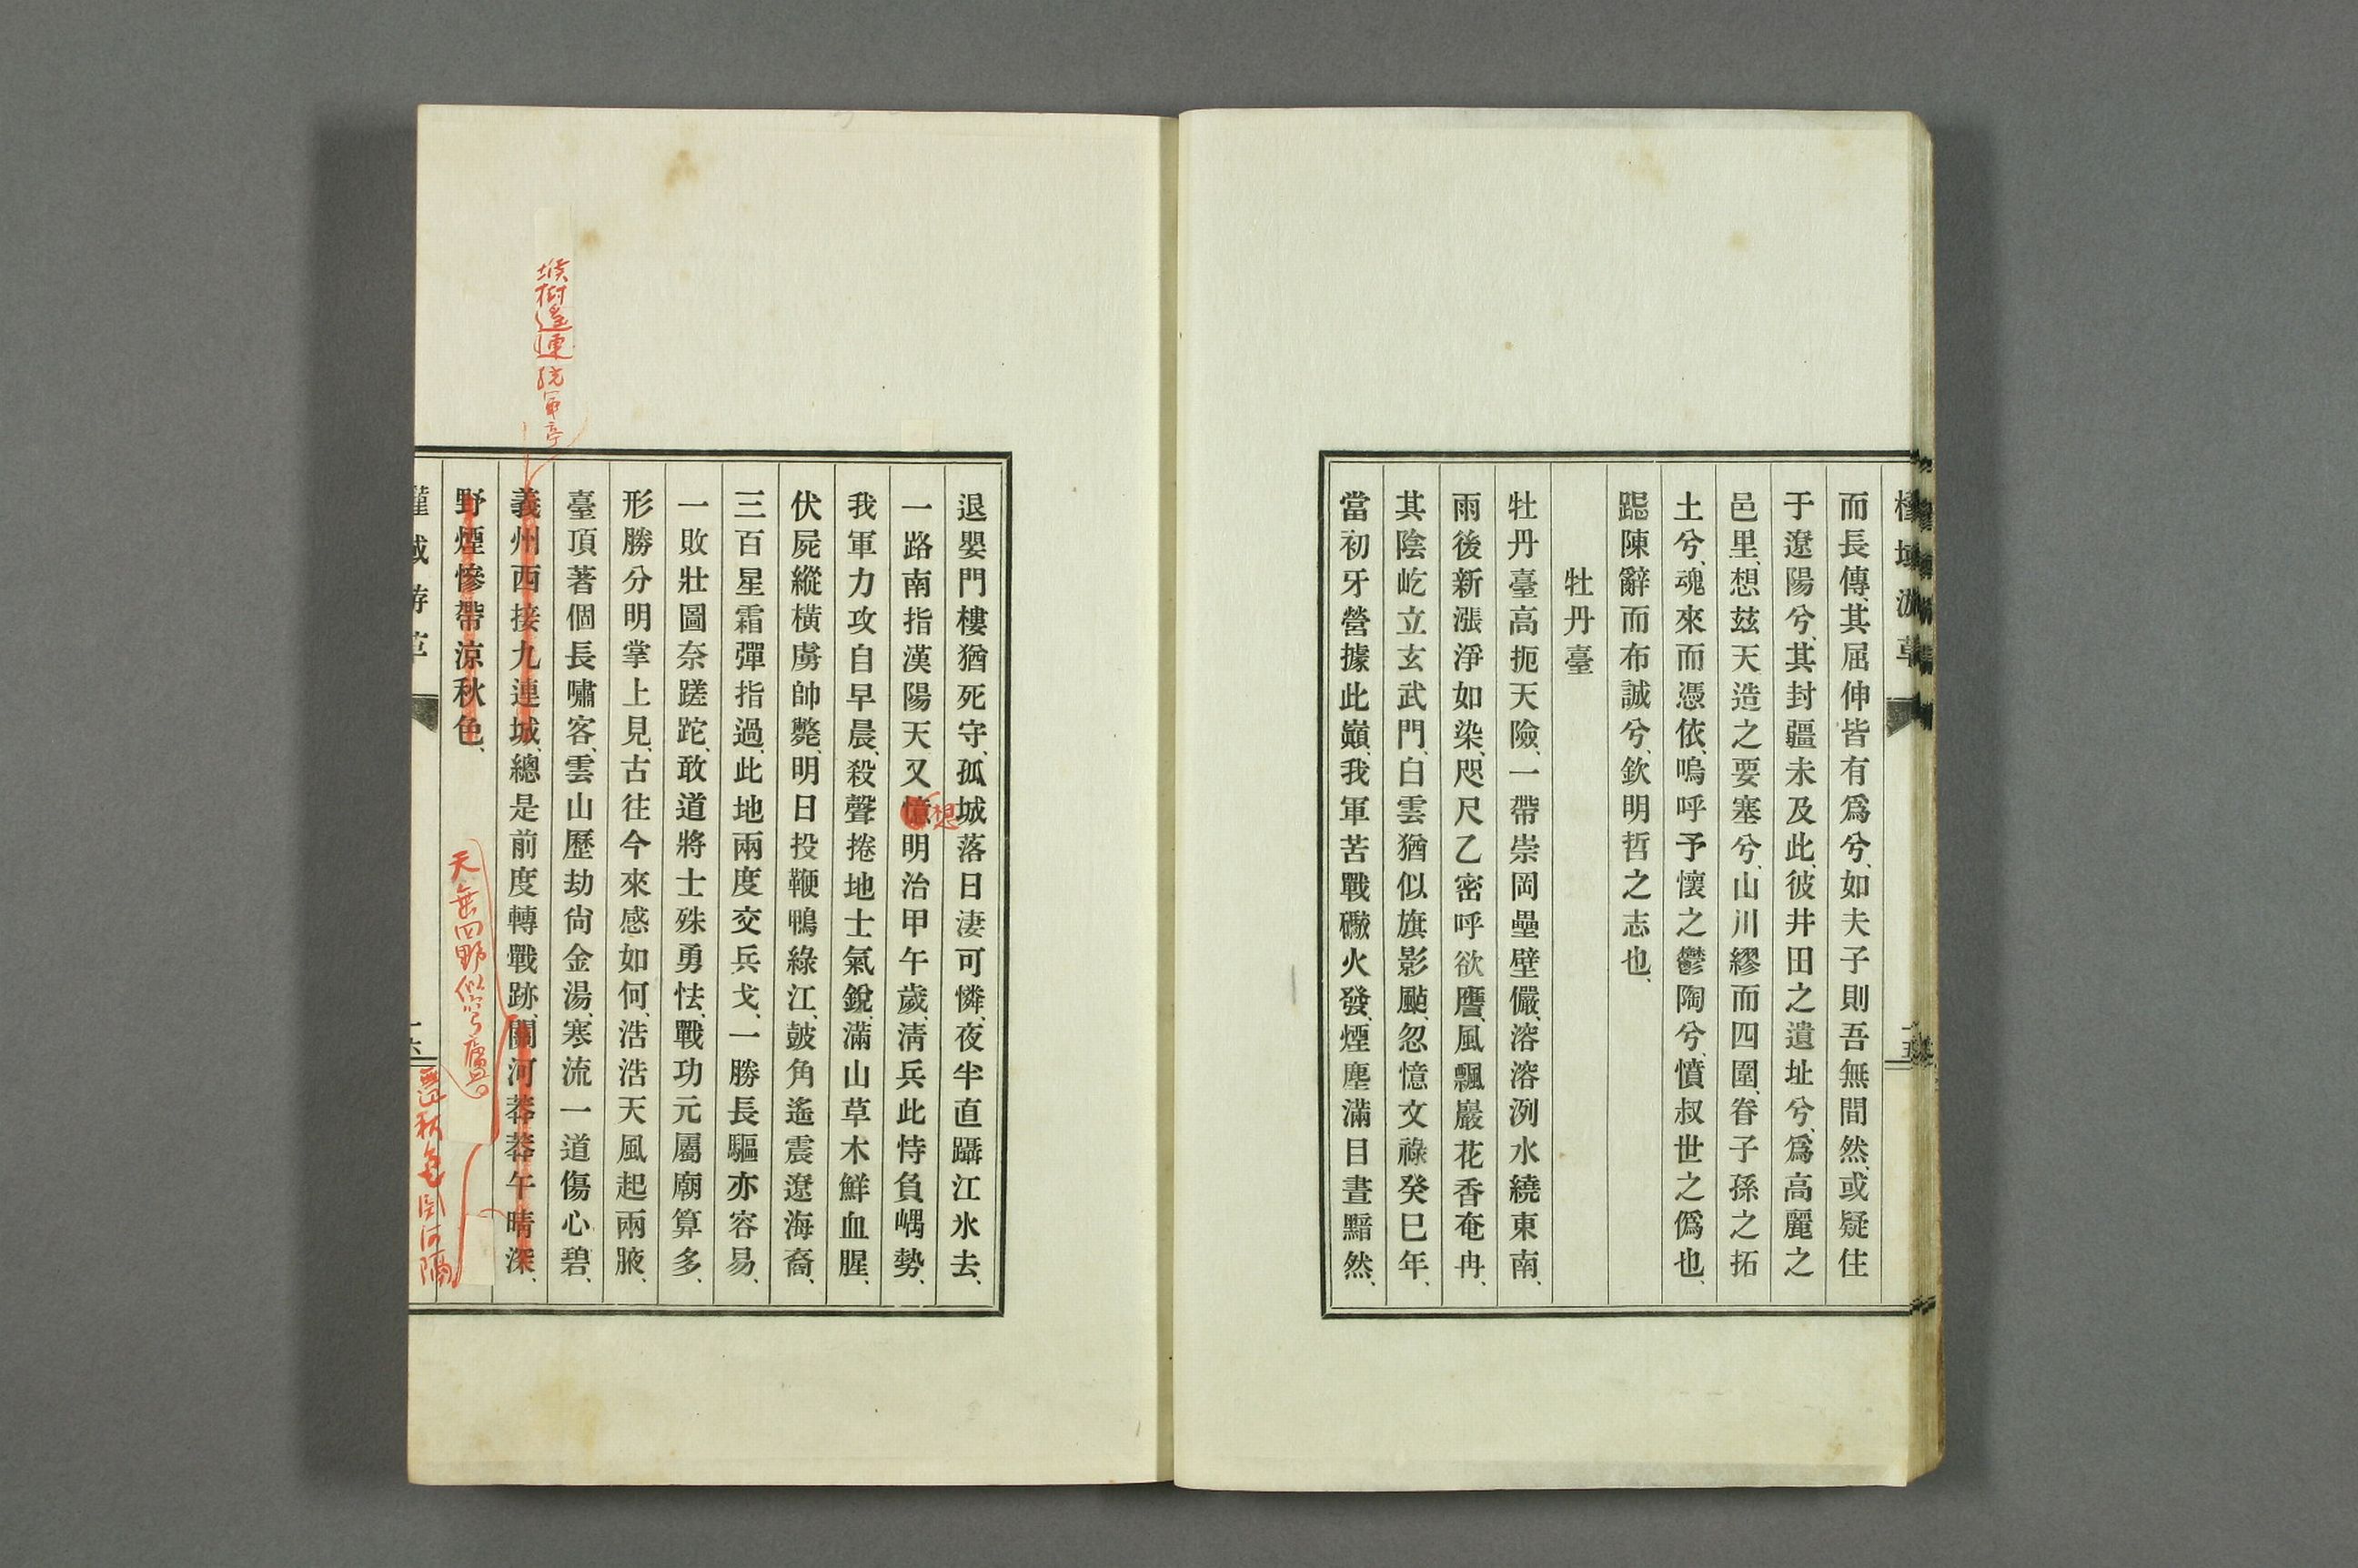 而長傳、其屈伸皆有爲兮、如夫子則吾無間然、或疑住
于遼陽兮、其封疆未及此、彼井田之遺址兮、爲高麗之
邑里、想玆天造之要塞兮、山川繆而四圍、眷子孫之拓
土兮、魂來而憑依、嗚呼予懷之鬱陶兮、憤叔世之僞也、
跽陳辭而布誠兮、欽明哲之志也、
牡丹臺
牡丹臺高扼天險、一帶崇岡壘壁儼、溶溶洌水繞東南、
雨後新漲淨如染、咫尺乙密呼欲譍、風飄巖花香奄冉、
其陰屹立玄武門、白雲猶似旗影颭、忽憶文祿癸巳年、
當初牙營據此巓、我軍苦戰礮火發、煙塵滿目晝黯然、
退嬰門樓猶死守、孤城落日淒可憐、夜半直躡江氷去、
一路南指漢陽天、又憶明治甲午歲、淸兵此恃負嵎勢、
想
我軍力攻自早晨、殺聲捲地士氣銳、滿山草木鮮血腥、
伏屍縱橫虜帥斃、明日投鞭鴨綠江、鼓角遙震遼海裔、
三百星霜彈指過、此地兩度交兵戈、一勝長驅亦容易、
一敗壯圖奈蹉跎、敢道將士殊勇怯、戰功元屬廟算多、
形勝分明掌上見、古往今來感如何、浩浩天風起兩腋、
臺頂著個長嘯客、雲山歷劫尙金湯、寒流一道傷心碧、
義州西接九連城、總是前度轉戰跡、關河莽莽午晴深、
堠樹遙連統軍亭
野煙慘帶涼秋色、
天垂四野似穹廬
無邊秋色關河隔
槿域游草
十六